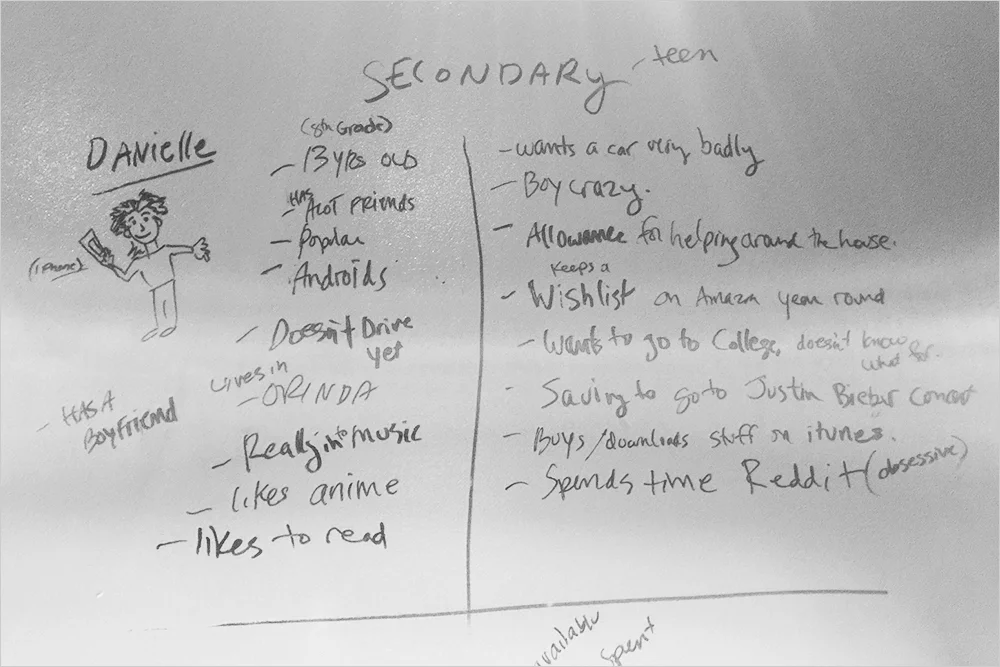 SECONDARY - teen
DANIELLE
(iPhone)
- HAS A
Boyfriend
(8th Grade)
- 13 yrs old
- HAS Alot Friends
- Popular
- Androids
- Doesn't Drive
yet
Lives in
- ORINDA
- Really into music
- likes anime
- likes to read
- wants a car very badly
- Boy crazy.
- Allowance for helping around the house.
keeps a
- Wishlist on Amazon year round
- Wants to go to College, doesn't know
what for.
- Saving to go to Justin Bieber concert
- Buys/downloads stuff on itunes.
- Spends time Reddit (obsessive)
available
spent